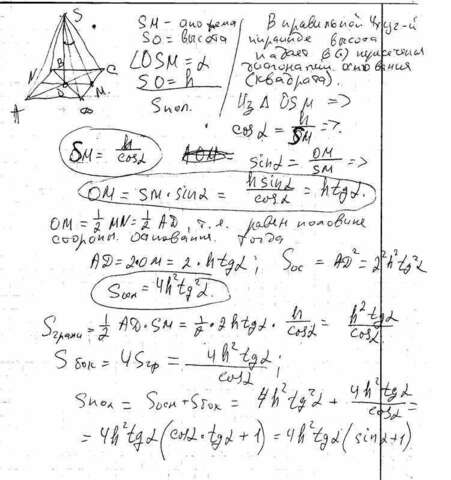 S
N
B
C
O
M
A
D
SM – апофема
SO = высота
∠OSM = α
SO = h
Sпол.
В правильной 4-уг-й
пирамиде высота
падает в (·) пересечения
диагонали основания
(квадрата).
Из Δ OSM =>
cosα = h/SM =>
SM = h/cosα
sinα = OM/SM =>
OM = SM·sinα = h sinα/cosα = h tgα.
OM = 1/2 MN = 1/2 AD, т.е. равен половине
стороны основания. Тогда
AD = 2·OM = 2·h tgα; Sос = AD² = 2²h²tg²α
Sосн = 4h²tg²α.
Sграни = 1/2 AD·SM = 1/2·2h tgα · h/cosα = h²tgα/cosα
Sбок = 4Sгр = 4h²tgα/cosα;
Sпол = Sосн + Sбок = 4h²tg²α + 4h²tgα/cosα =
= 4h²tgα (cosα·tgα + 1) = 4h²tgα (sinα+1)